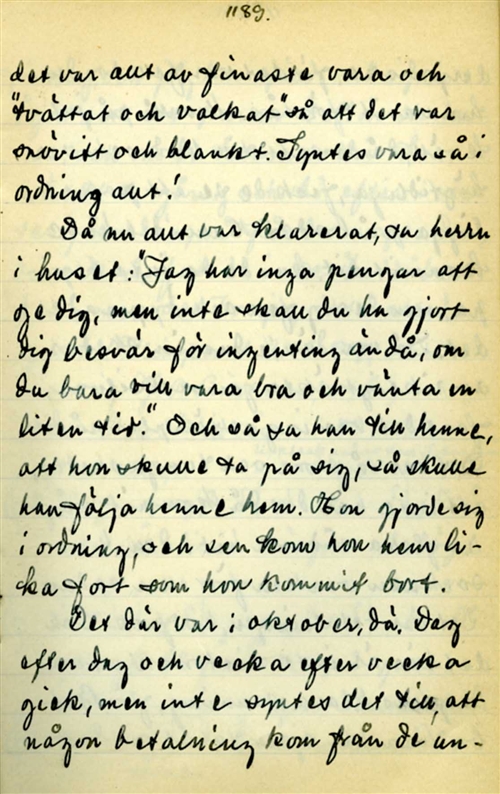 1189.
det var allt av finaste vara och
"tvättat och valkat" så att det var
snövitt och blankt. Syntes vara så i
ordning allt!
Då nu allt var klarerat, sa herrn
i huset: "Jag har inga pengar att
ge dig, men inte skall du ha gjort
dig besvär för ingenting ändå, om
du bara vill vara bra och vänta en
liten tid." Och så sa han till henne,
att hon skulle ta på sig, så skulle
han följa henne hem. Hon gjorde sig
i ordning, och sen kom hon hem li-
ka fort som hon kommit bort.
Det där var i oktober, då. Dag
efter dag och vecka efter vecka
gick, men inte syntes det till, att
någon betalning kom från de un-